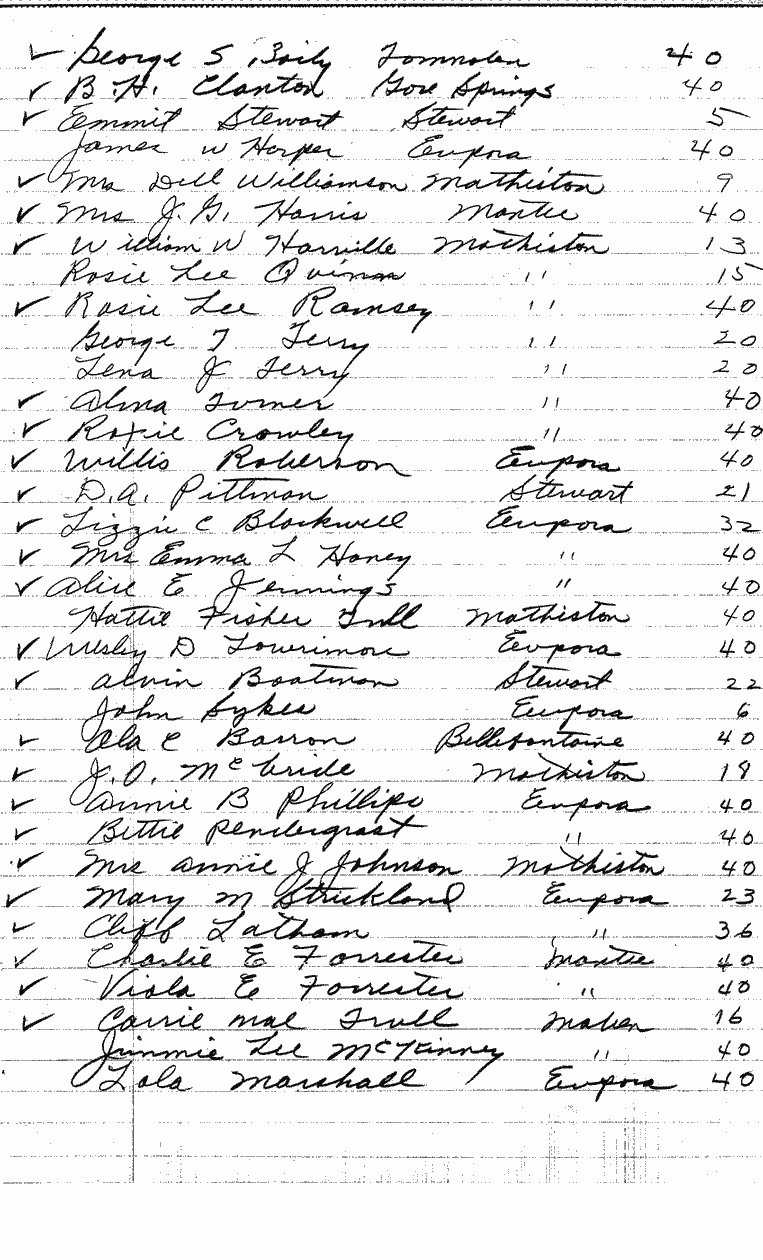 ✓ George S. Baily Tomnolen 40
✓ B.H. Clanton Gore Springs 40
✓ Emmit Stewart Stewart 5
James W Harper Eupora 40
✓ Mrs Dell Williamson Mathiston 9
✓ Mrs J.G. Harris Mantee 40
✓ William W Harville Mathiston 13
Rosie Lee Quinan " 15
✓ Rosie Lee Ramsey " 40
George T Terry " 20
Lena J Terry " 20
✓ Alma Turner " 40
✓ Roxie Crowley " 40
✓ Willis Roberson Eupora 40
✓ D.A. Pittman Stewart 21
✓ Lizzie C Blackwell Eupora 32
✓ Mrs Emma L Haney " 40
✓ Alice E Jennings " 40
Hattie Fisher Trull Mathiston 40
✓ Wesley D Lowrimore Eupora 40
✓ Alvin Boatman Stewart 22
John Sykes Eupora 6
✓ Ola C Barron Bellefontaine 40
✓ J.O. McBride Mathiston 18
✓ Annie B Phillips Eupora 40
✓ Bettie Pendergrast " 40
✓ Mrs Annie J Johnson Mathiston 40
✓ Mary M Strickland Eupora 23
✓ Cliff Latham " 36
✓ Charlie E Forrester Mantee 40
✓ Viola E Forrester " 40
✓ Carrie Mae Trull Maben 16
Jimmie Lee McKinney " 40
Lola Marshall Eupora 40